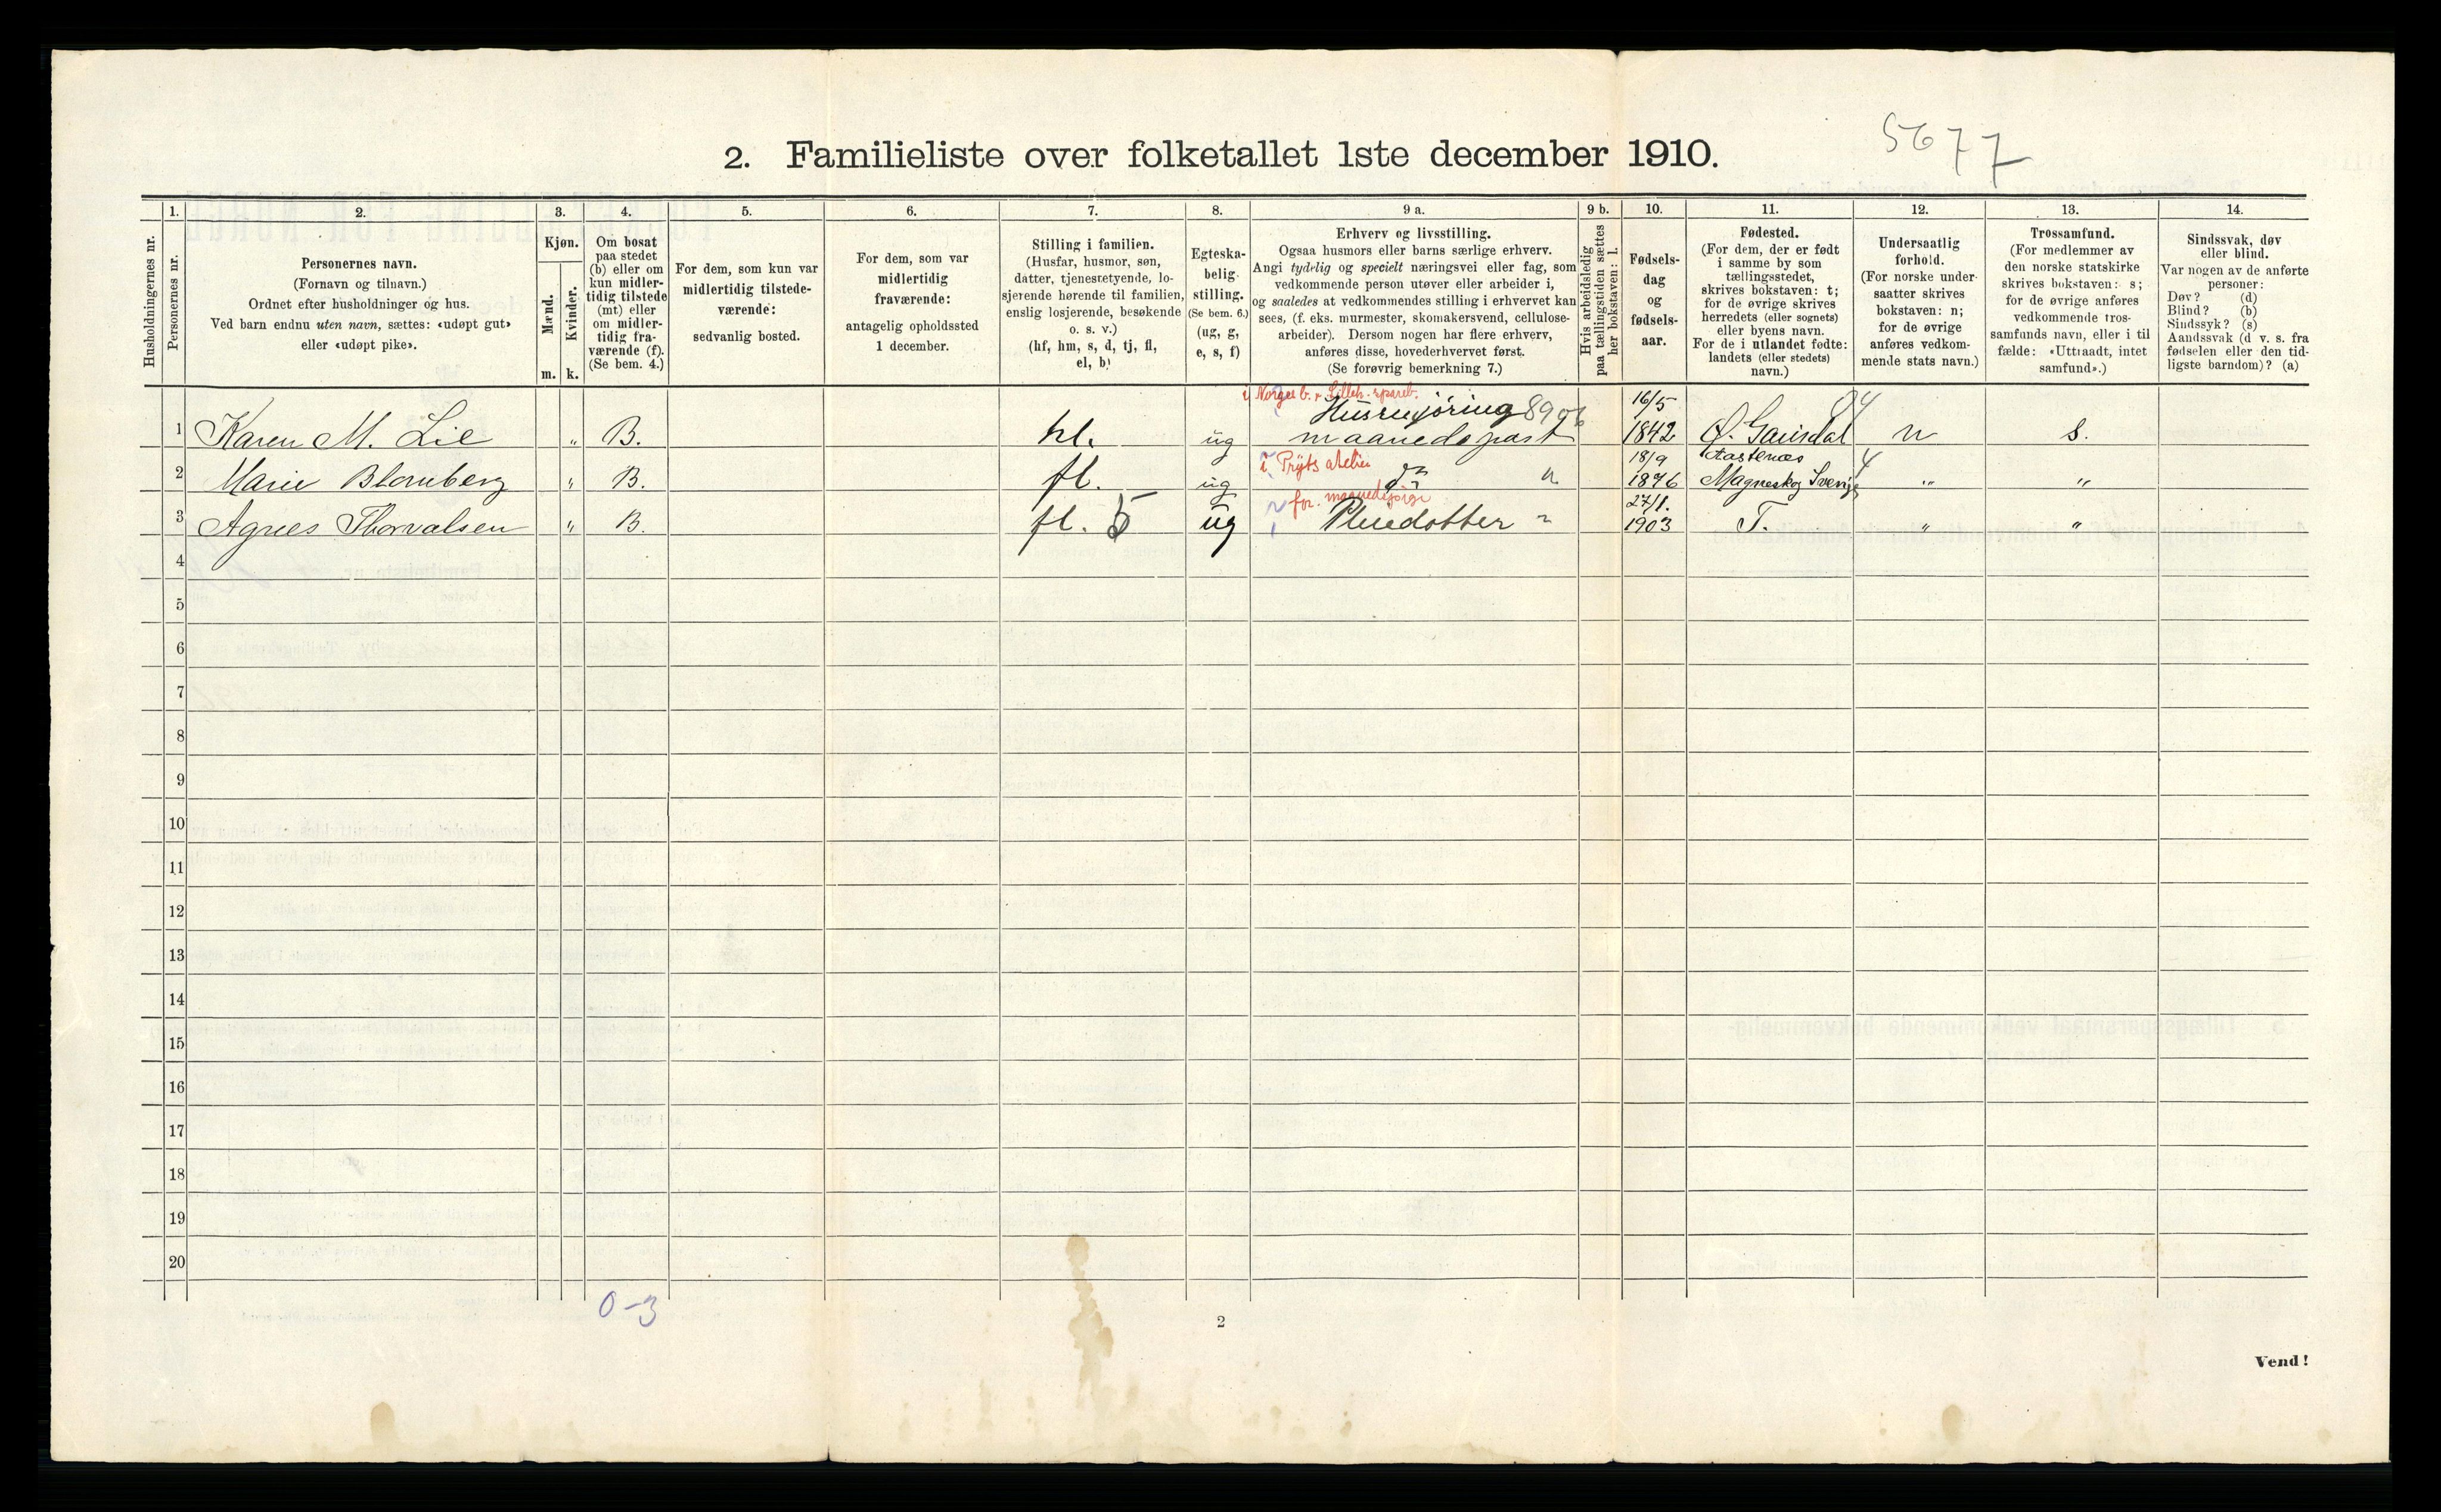 5677
2. Familieliste over folketallet 1ste december 1910.
Husholdningernes nr.
1.
Personernes nr.
2.
Personernes navn.
(Fornavn og tilnavn.)
Ordnet efter husholdninger og hus.
Ved barn endnu uten navn, sættes: «udøpt gut»
eller «udøpt pike».
3.
Kjøn.
Mænd.
m.
Kvinder.
k.
4.
Om bosat
paa stedet
(b) eller om
kun midler-
tidig tilstede
(mt) eller
om midler-
tidig fra-
værende (f).
(Se bem. 4.)
5.
For dem, som kun var
midlertidig tilstede-
værende:
sedvanlig bosted.
6.
For dem, som var
midlertidig
fraværende:
antagelig opholdssted
1 december.
7.
Stilling i familien.
(Husfar, husmor, søn,
datter, tjenestetyende, lo-
sjerende hørende til familien,
enslig losjerende, besøkende
o. s. v.)
(hf, hm, s, d, tj, fl,
el, b)
8.
Egteska-
belig
stilling.
(Se bem. 6.)
(ug, g,
e, s, f)
9 a.
Erhverv og livsstilling.
Ogsaa husmors eller barns særlige erhverv.
Angi tydelig og specielt næringsvei eller fag, som
vedkommende person utøver eller arbeider i,
og saaledes at vedkommendes stilling i erhvervet kan
sees, (f. eks. murmester, skomakersvend, cellulose-
arbeider). Dersom nogen har flere erhverv,
anføres disse, hovederhvervet først.
(Se forøvrig bemerkning 7.)
9 b.
Hvis arbeidsledig
paa tællingstiden sættes
her bokstaven: l.
10.
Fødsels-
dag
og
fødsels-
aar.
11.
Fødested.
(For dem, der er født
i samme by som
tællingsstedet,
skrives bokstaven: t;
for de øvrige skrives
herredets (eller sognets)
eller byens navn.
For de i utlandet fødte:
landets (eller stedets)
navn.)
12.
Undersaatlig
forhold.
(For norske under-
saatter skrives
bokstaven: n;
for de øvrige
anføres vedkom-
mende stats navn.)
13.
Trossamfund.
(For medlemmer av
den norske statskirke
skrives bokstaven: s;
for de øvrige anføres
vedkommende tros-
samfunds navn, eller i til
fælde: «Uttraadt, intet
samfund».)
14.
Sindssvak, døv
eller blind.
Var nogen av de anførte
personer:
Døv? (d)
Blind? (b)
Sindssyk? (s)
Aandssvak (d v. s. fra
fødselen eller den tid-
ligste barndom)? (a)
i Norges b. Lilleh. spareb.
Husrengjøring 16/5
1 Karen M. Lie „ B. hl. ug maanedspost 1842 Ø. Gausdal n s.
i Prÿts atelier 18/9
2 Marie Blomberg „ B. fl. ug do „ 1876 Magneskog Sverige „ „
for. 27/1.
3 Agnes Thorvalsen „ B. fl. 5 ug Pleiedotter 1903 T. „ „
4
5
6
7
8
9
10
11
12
13
14
15
16
17
18
19
20
0-3
2
Vend!